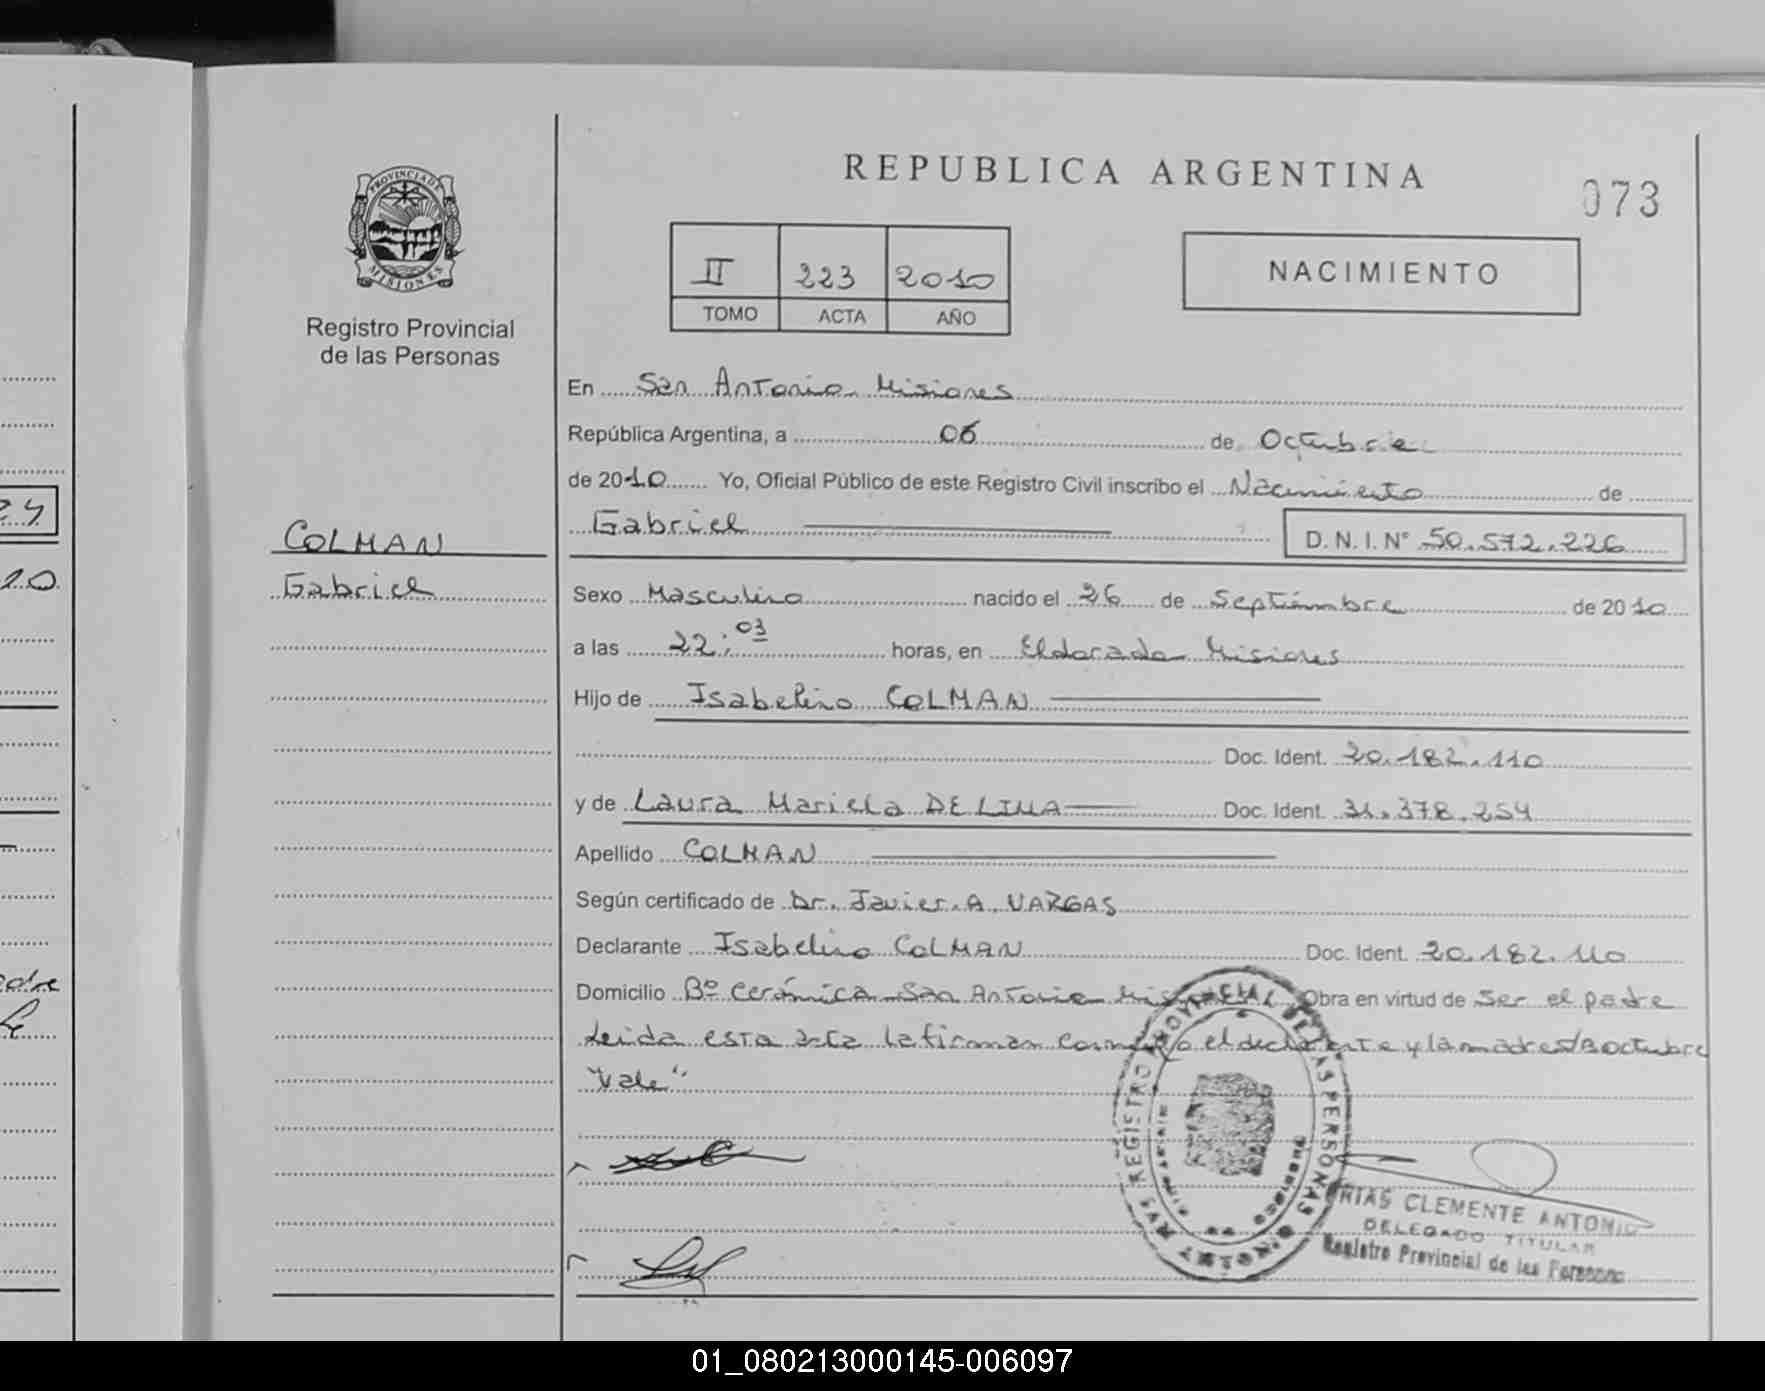 PROVINCIA DE
MISIONES
Registro Provincial
de las Personas
COLMAN
Gabriel
REPUBLICA ARGENTINA
073
II 223 2010
TOMO ACTA AÑO
NACIMIENTO
En San Antonio Misiones
República Argentina, a 06 de Octubre
de 2010 Yo, Oficial Público de este Registro Civil inscribo el Nacimiento de
Gabriel D.N.I.N° 50.572.226
Sexo Masculino nacido el 26 de Septiembre de 2010
a las 22:03 horas, en Eldorado Misiones
Hijo de Isabelino COLMAN
Doc. Ident. 20.182.110
y de Laura Mariela DE LIMA Doc. Ident. 31.378.254
Apellido COLMAN
Según certificado de Dr. Javier A. VARGAS
Declarante Isabelino COLMAN Doc. Ident. 20.182.110
Domicilio Bº Cerámica San Antonio Obra en virtud de ser el padre
Leida esta acta la firman conmigo el declarante y la madre
"Vale"
REGISTRO PROVINCIAL DE LAS PERSONAS
ARIAS CLEMENTE ANTONIO
DELEGADO TITULAR
Registro Provincial de las Personas
24
10
adre
01_080213000145-006097